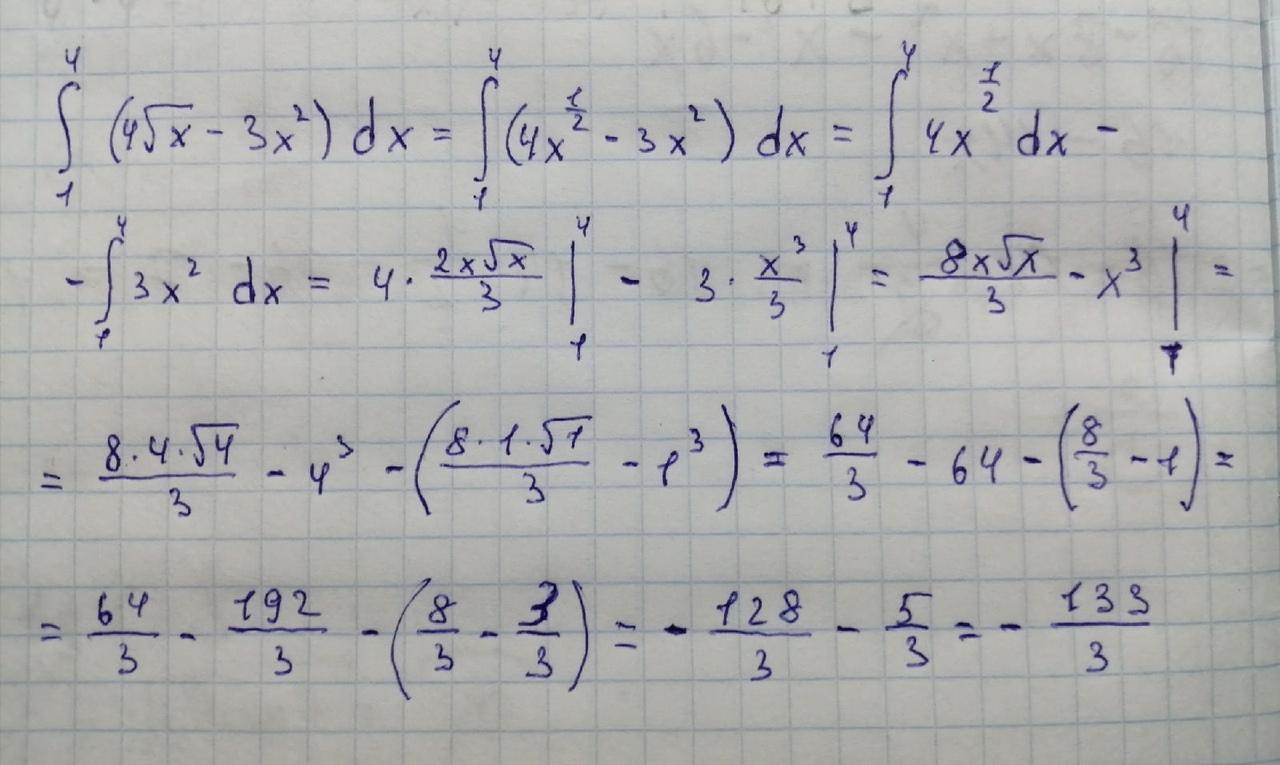 ∫₁⁴ (4√x - 3x²) dx = ∫₁⁴ (4x^(1/2) - 3x²) dx = ∫₁⁴ 4x^(1/2) dx -
- ∫₁⁴ 3x² dx = 4 · (2x√x)/3 |₁⁴ - 3 · x³/3 |₁⁴ = (8x√x)/3 - x³ |₁⁴ =
= (8·4·√4)/3 - 4³ - ((8·1·√1)/3 - 1³) = 64/3 - 64 - (8/3 - 1) =
= 64/3 - 192/3 - (8/3 - 3/3) = - 128/3 - 5/3 = - 133/3